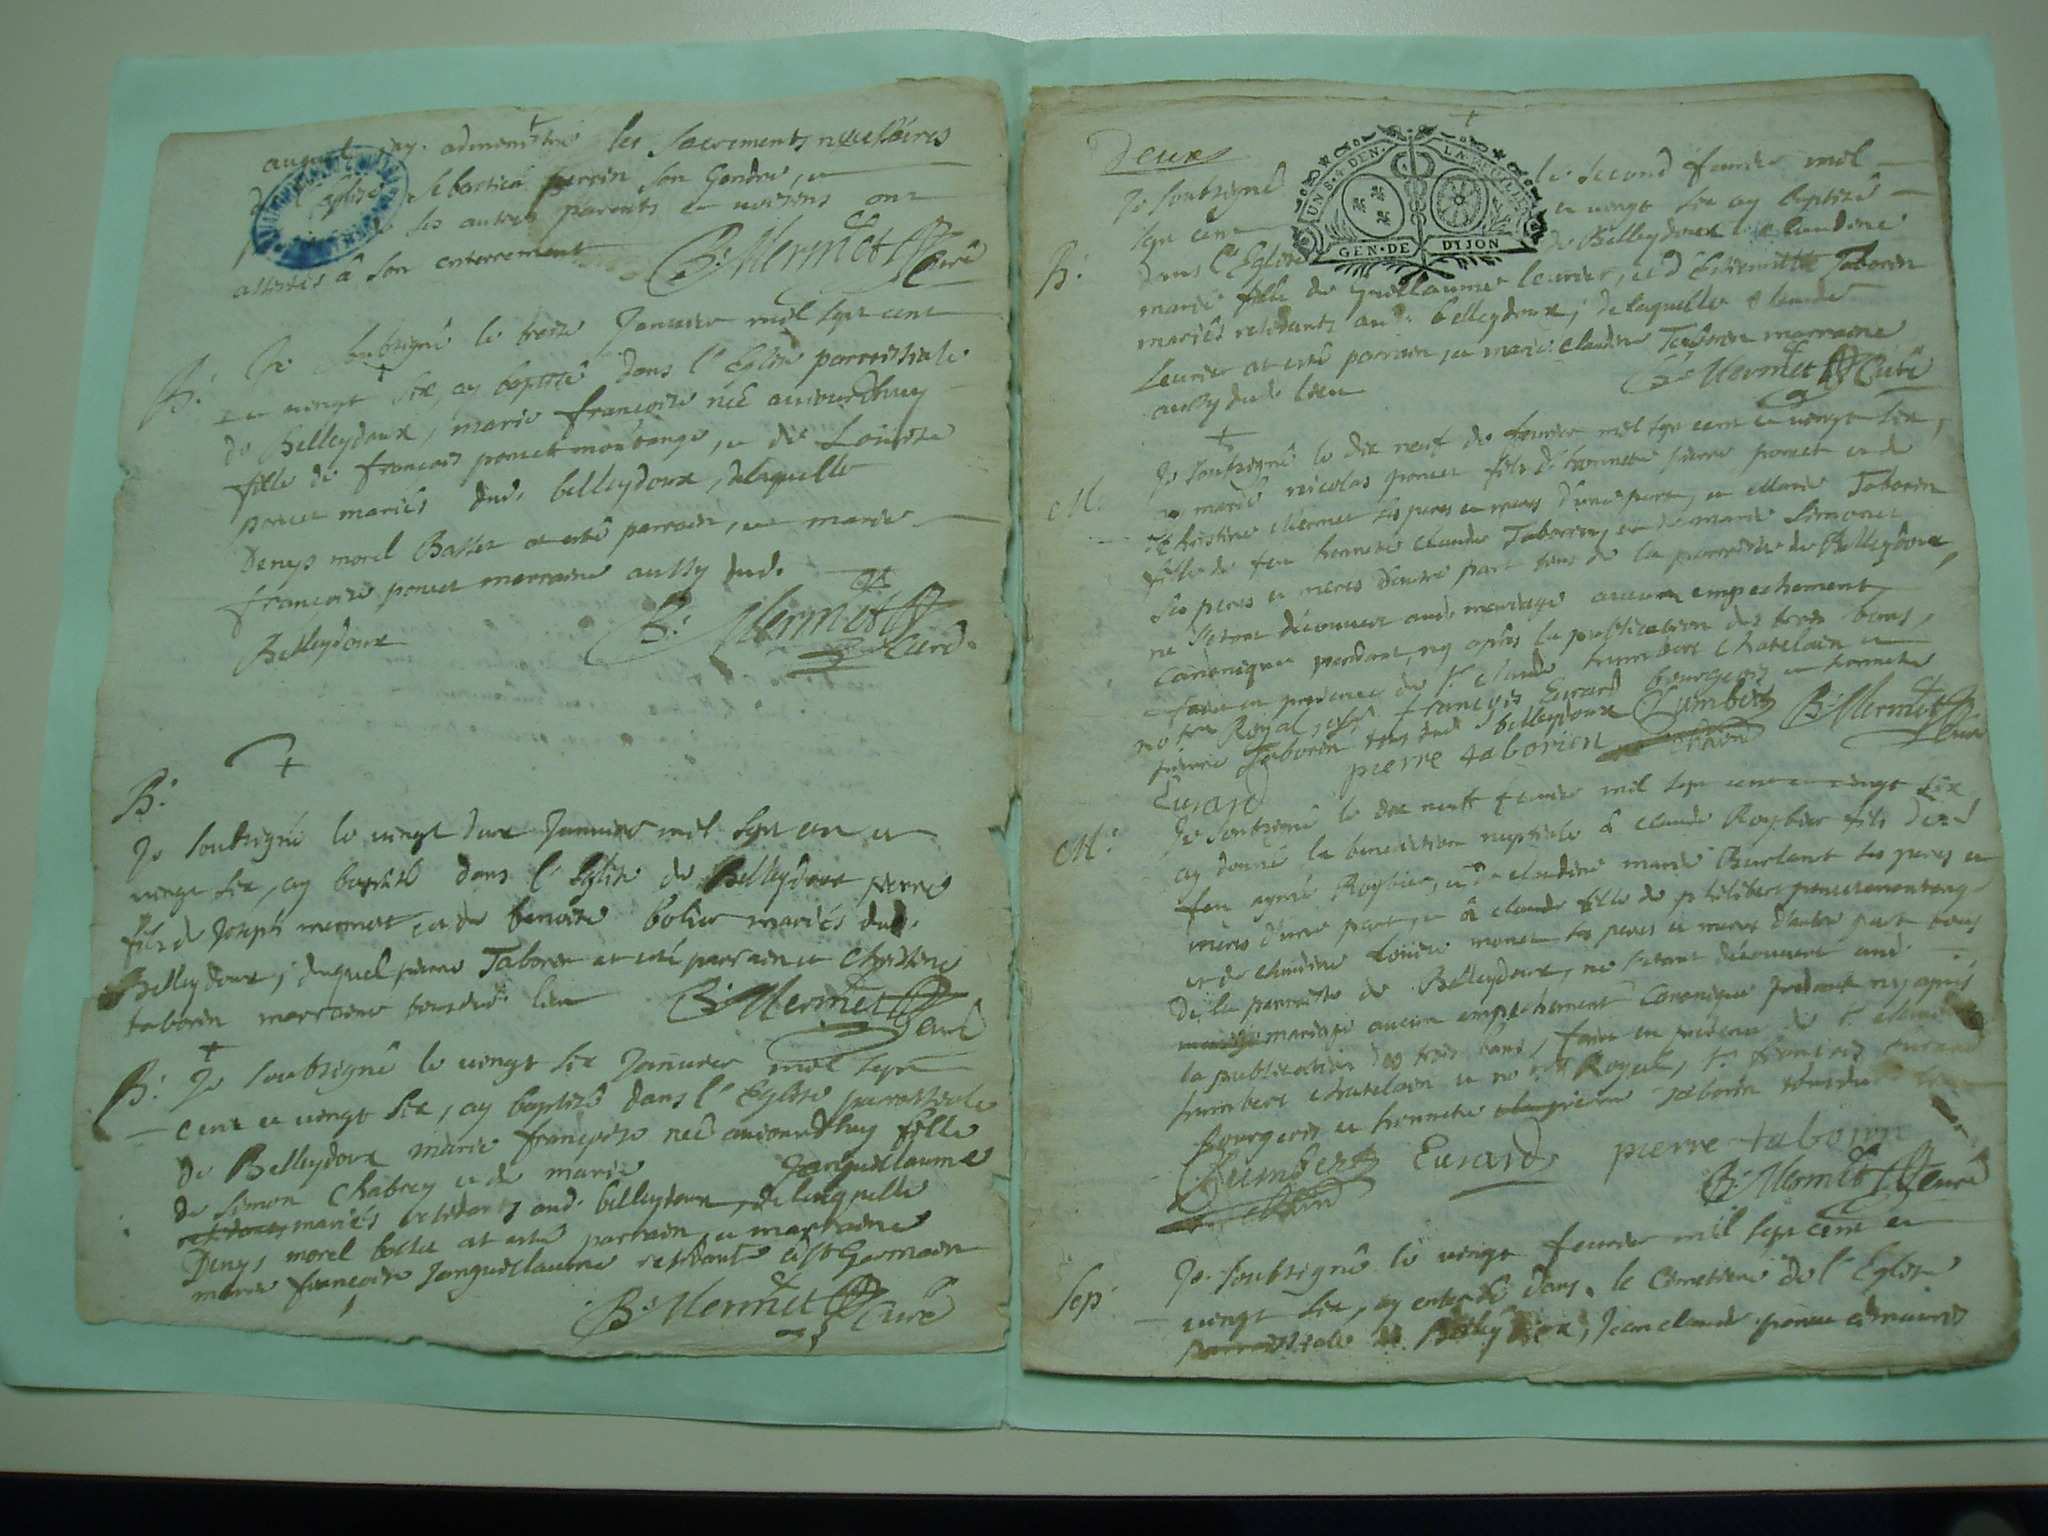 auquel j'ay administré les sacrements necessaires
de l'eglise, sebastien perrin son Gendre, et
ses autres parents et voisins ont
assistés â son enterrement B: Mermet Curé
B: Je soubsigné le treize Januier mil sept cent
et vingt six, ay baptisé dans l'Eglise parroissiale
de Belleydoux, marie françoise néé auiourdhuy
fille de françois poncet montange, et de Louise
poncet mariés dud. belleydoux, delaquelle
Denys morel Basset at esté parrain, et marie
françoise poncet marraine aussy dud.
Belleydoux B: Mermet Curé.
B:
Je soubsigné le vingt deux Januier mil sept cen et
vingt six, ay baptisé dans l'Eglise de Belleydoux pierre
fils de Joseph mermet, et de benoite mariés dud.
Belleydoux, duquel pierre Taborin at esté parrain et Christine
taborin marraine tous dud. lieu B: Mermet Curé
B: Je soubsigné le vingt six Januier mil sept
cent et vingt six, ay baptisé dans l'Eglise parroissiale
de Belleydoux marie françoise néé auiourdhuy fille
de simon Chabrey et de marie Janguillaume
mariés residants aud. belleydoux, de laquelle
Denys morel basset at esté parrain, et marraine
marie françoise Janguillaume residante â st Germain
B: Mermet Curé
Deux
UN S. 4 DEN. LA FEUILLE
GEN. DE DIJON
Je soubsigné le second feurier mil
sept cent et vingt six ay baptisé
B: dans l'Eglise de Belleydoux claudine
marie fille de guillaume leurier, et d'Estiennette Taborin
mariés residants aud. belleydoux, delaquelle claude
Leurier at esté parrain, et marie claudine Taborin marraine
aussy dud. lieu B: Mermet Curé
M. Je soubsigné le dix neuf de feurier mil sept cent et vingt six,
ay marié nicolas poncet fils d'honneste pierre poncet et de
Christine Mermet ses peres et meres d'une part, et Marie Taborin
fille de feu honneste Claude Taborin, et de marie Simonet
ses peres et meres d'autre part tous de la parroisse de Belleydoux,
ne s'etant découuert aud. mariage aucun empeschement
canonique pendant, ny après la publication des trois bans,
faite en presence de sr. claude humbert Chatelain et
notre Royal, sr. françois Eurard bourgeois et honneste
pierre Taborin tous dud. belleydoux Humbert B: Mermet Curé
pierre taborien
Eurard
M: Je soubsigné le dix neuff feurier mil sept cent et vingt six
ay donné la benediction nuptiale â claude Roybier fils de
feu aymé Roybier, et de claudine marie Burlant ses peres et
meres d'une part, et â claude fille de philibert poncet montange
et de claudine Louise monet ses peres et meres d'autre part tous
de la parroisse de Belleydoux, ne s'etant découuert aud.
mariage aucun empechement Canonique pendant ny après
la publication des trois bans, faite en presence de sr. claude
humbert chatelain et notre Royal, sr. françois Eurard
bourgeois et honneste pierre Taborin tous dud. lieu
Humbert Eurard pierre taborin
B: Mermet Curé
Sep: Je soubsigné le vingt feurier mil sept cent et
vingt six, ay enterré dans le Cimetiere de l'Eglise
parroissiale de Belleydoux, Jean claude poncet